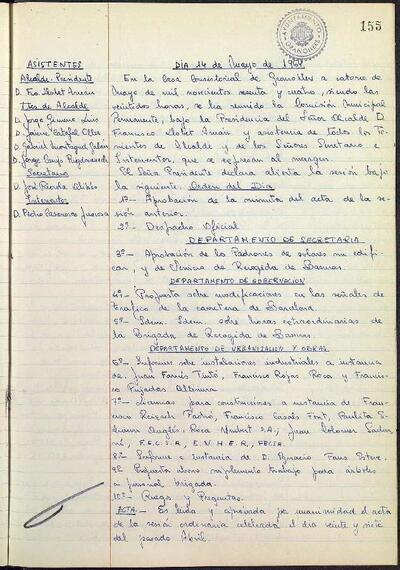 155
AYUNTAMIENTO GRANOLLERS
ASISTENTES
Alcalde-Presidente
D. Fco Llobet Arnán
Ttes de Alcalde
D. Jorge Gimeno
D. Jaime
D. Gabriel
D. Jorge
Secretario
D. José
Interventor
D. Pedro
DIA 14 de Mayo de 1964
En la Casa Consistorial de Granollers a catorce de
Mayo de mil novecientos sesenta y cuatro, siendo las
veintidos horas, se ha reunido la Comisión Municipal
Permanente, bajo la Presidencia del Señor Alcalde D.
Francisco Llobet Arnán y asistencia de todos los Te-
nientes de Alcalde y de los Señores Secretario e
Interventor, que se expresan al margen.
El Señor Presidente declara abierta la sesión bajo
la siguiente: Orden del Dia
1º- Aprobacion de la minuta del acta de la se
sión anterior.
2º- Despacho Oficial
DEPARTAMENTO DE SECRETARIA
3º- Aprobación de los Padrones de solares sin edifi-
car, y de Servicio de Recogida de Basuras.
DEPARTAMENTO DE GOBERNACION
4º- Propuesta sobre modificaciones en las señales de
trafico de la carretera de Barcelona.
5º- Idem. Idem. sobre horas extraordinarias de
la Brigada de Recogida de Basuras.
DEPARTAMENTO DE URBANIZACION Y OBRAS
6º- Informes sobre instalaciones industriales a instancia
de: Juan Farnés Tintó, Francisco Rojas Roca y Francis-
co Pujadas
7º- Licencias para construcciones a instancia de: Fran-
cisco Padró, Francisco Casals Font, Paulita
Anglés, Roca Umbert S.A., Juan Colomer
F.E.C.S.A., E.N.H.E.R., FECSA
8º- Informe e instancia de D. Ignacio Fans Esteve.
9º Propuesta abono suplemento trabajo poda árboles
a personal brigada.
10º- Ruegos y Preguntas.
ACTA.- Es leida y aprobada por unanimidad el acta
de la sesión ordinaria celebrada el dia veinte y siete
del pasado Abril.